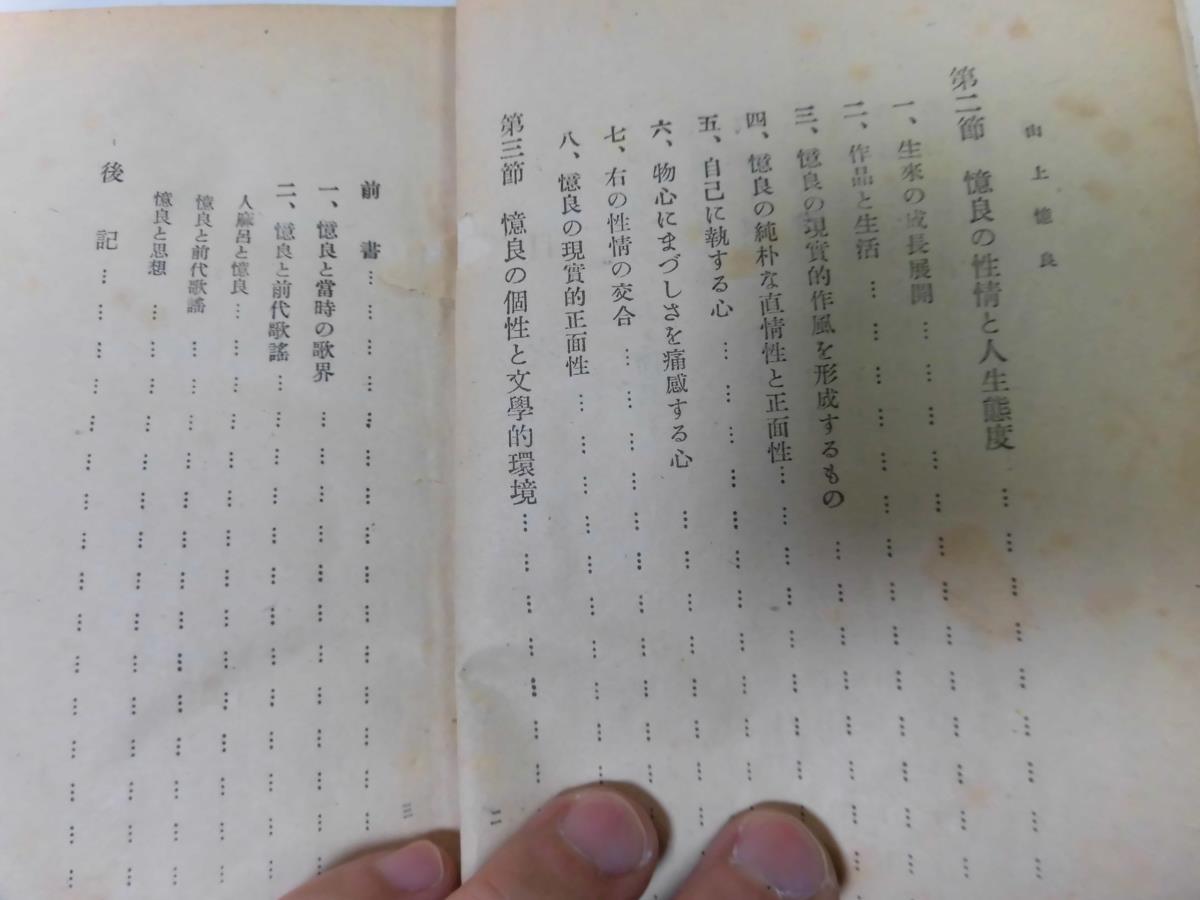 山上憶良
第二節　憶良の性情と人生態度……………………
一、生來の成長展開……………………
二、作品と生活……………………
三、憶良の現實的作風を形成するもの……………………
四、憶良の純朴な直情性と正面性……………………
五、自己に執する心……………………
六、物心にまづしさを痛感する心……………………
七、右の性情の交合……………………
八、憶良の現實的正面性……………………
第三節　憶良の個性と文學的環境……………………
二
前書……………………
一、憶良と當時の歌界……………………
二、憶良と前代歌謠……………………
人麻呂と憶良……………………
憶良と前代歌謠……………………
憶良と思想……………………
後記……………………
三